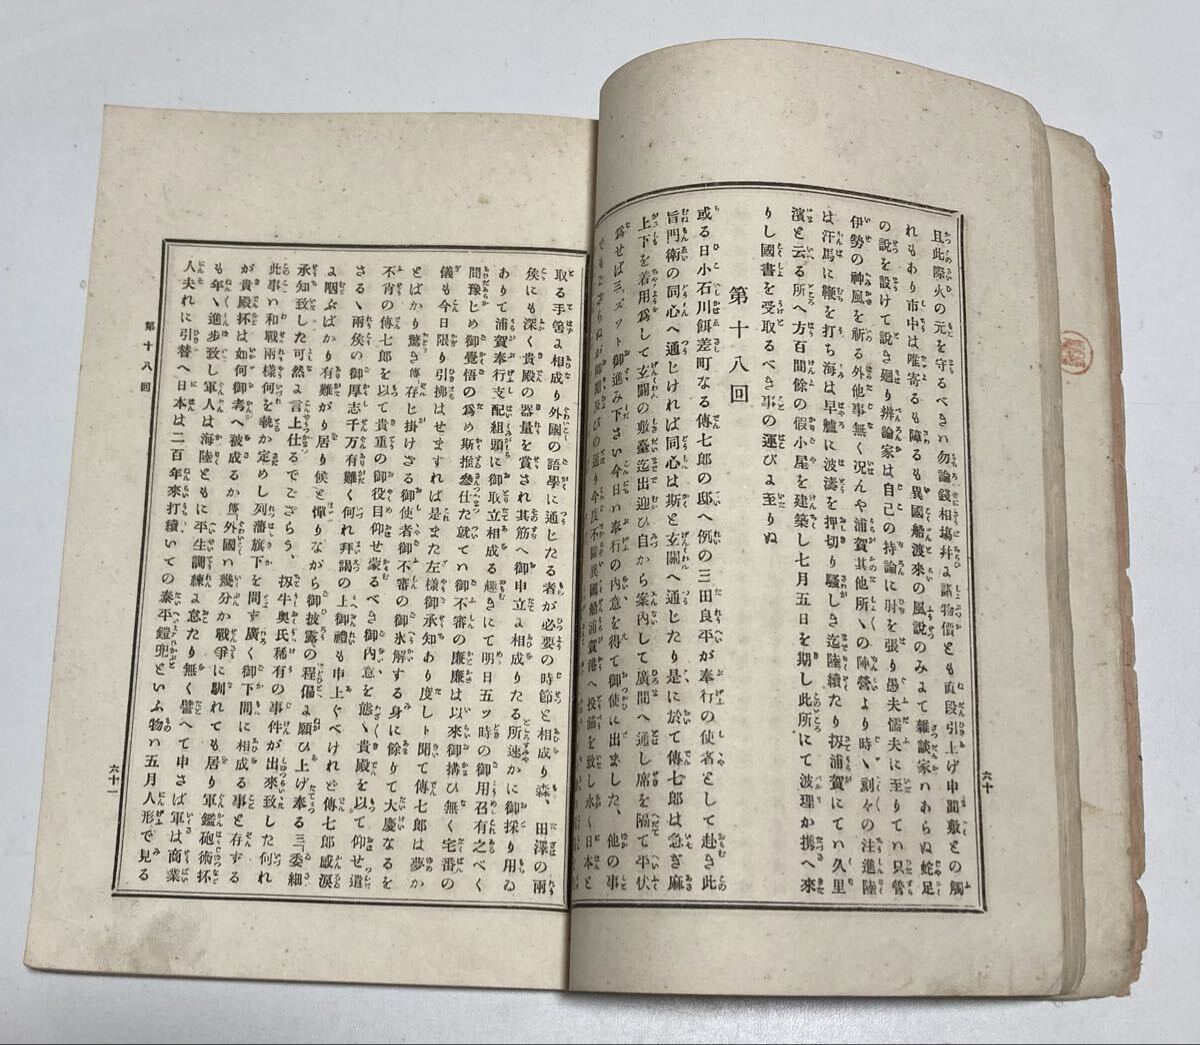 且此際火の元を守るべきハ勿論錢相塲幷ゟ諸物價とも直段引上げ申間敷との觸
れもあり市中は唯寄るも障るも異國船渡來の風說のみゟて雜談家ハあらぬ蛇足
の說を設けて說き廻り辨論家は自己の持論に肘を張り愚夫懦夫に至りてハ只管
伊勢の神風を祈る外他事無く况んや浦賀其他所〻の陣營より時〻刻々の注進陸
は汗馬に鞭を打ち海は早艫に波濤を押切り騷しき迄陸續たり扨浦賀にてハ久里
濱と云る所へ方百間餘の假小屋を建築し七月五日を期し此所にて波理か携へ來
りし國書を受取るべき事の運びゟ至りぬ
第十八回
或る日小石川餌差町なる傳七郎の邸へ例の三田良平が奉行の使者として赴き此
旨門衛の同心へ通じければ同心は斯と玄關へ通じたり是に於て傳七郎は急ぎ麻
上下を着用爲して玄關の敷臺迄出迎ひ自から案內して廣間へ通し席を隔て平伏
爲せば三ズット御進み下さい今日ハ奉行の內意を得て御使に出ました、他の事
でもござらぬが御聞及びの通り今度不圖異國船浦賀港へ投錨を致し永く日本と
六十
取る手筈ゟ相成り外國の語學に通じたる者が必要の時節と相成り森、田澤の兩
侯にも深く貴殿の器量を賞され其筋へ御申立ゟ相成りたる所速かに御採り用ゐ
ありて浦賀奉行支配組頭に御取立相成る趣きにて明日五ツ時の御用召有之べく
間豫じめ御覺悟の爲め斯推參仕た就てハ御不審の廉廉は以來御搆ひ無く宅番の
儀も今日限り引拂はせますれば是また左樣御承知あり度しト聞て傳七郎は夢か
とばかり驚き傳存じ掛けざる御使者御不審の御氷解する身に餘りて大慶なるを
不肖の傳七郎を以て貴重の御役目仰せ蒙るべき御內意を態〻貴殿を以て仰せ遣
さる〻兩侯の御厚志千万有難く何れ拜謁の上御禮も申上ぐべけれど傳七郎感淚
ゟ咽ぶばかり有難がり居り候と憚りながら御披露の程偏ゟ願ひ上げ奉る三委細
承知致した可然ゟ言上仕るでござらう、扨牛奥氏稀有の事件が出來致した何れ
此事ハ和戰兩樣何を執か定めし列藩旗下を問す廣く御下間に相成る事と存する
が貴殿抔は如何御考へ被成るか傳外國ハ幾分か戰爭に馴れても居り軍鑑砲術抔
も年〻進步致し軍人は海陸ともに平生調練ゟ怠たり無く譬へて申さば軍は商業
人夫れに引替へ日本は二百年來打續いての泰平鎧兜といふ物ハ五月人形で見る
第十八回
六十一